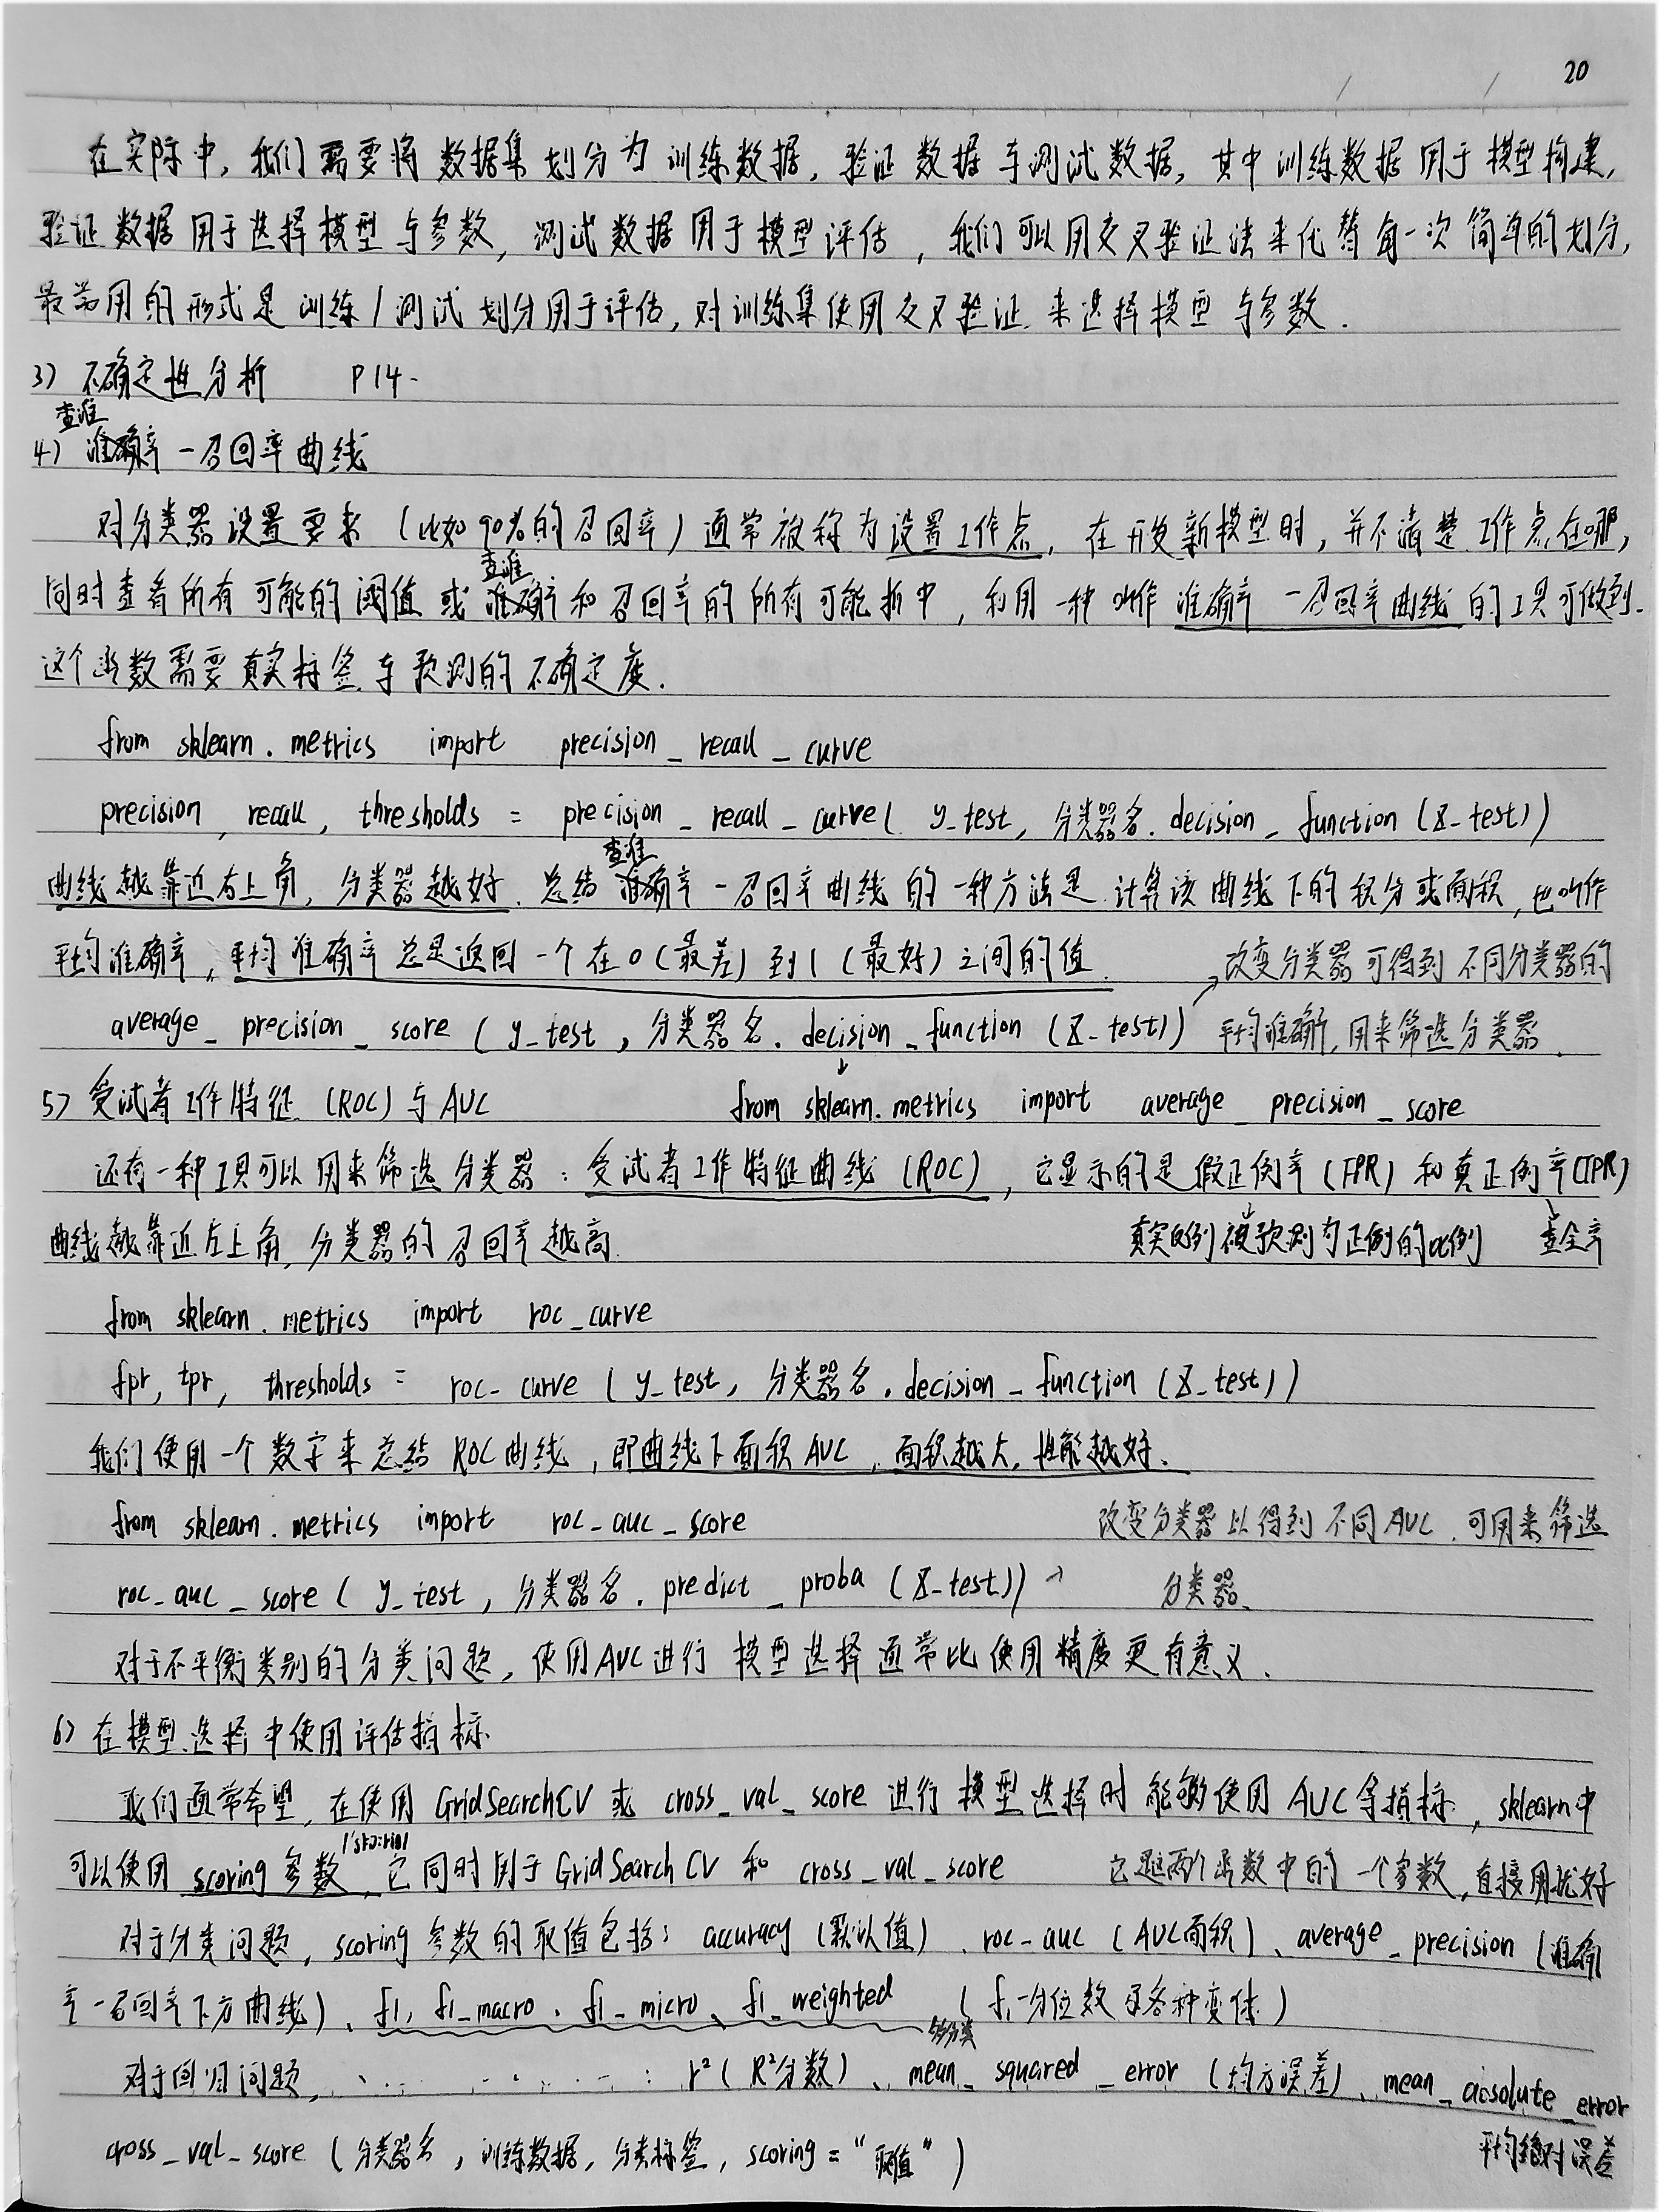 20
在实际中,我们需要将数据集划分为训练数据,验证数据与测试数据,其中训练数据用于模型构建,
验证数据用于选择模型与参数,测试数据用于模型评估,我们可以用交叉验证法来代替每一次简单的划分,
最常用的形式是训练/测试划分用于评估,对训练集使用交叉验证来选择模型与参数.
3) 不确定性分析 P14-
查准
4) 准确率-召回率曲线
对分类器设置要求(比如90%的召回率)通常被称为设置工作点,在开发新模型时,并不清楚工作点在哪,
查准
同时查看所有可能的阈值或准确率和召回率的所有可能折中,利用一种叫作准确率-召回率曲线的工具可做到.
这个函数需要真实标签与预测的不确定度.
from sklearn.metrics import precision_recall_curve
precision, recall, thresholds = precision_recall_curve( y_test, 分类器名.decision_function (X_test))
查准
曲线越靠近右上角,分类器越好.总结准确率-召回率曲线的一种方法是计算该曲线下的积分或面积,也叫作
平均准确率,平均准确率总是返回一个在0(最差)到1(最好)之间的值. 改变分类器可得到不同分类器的
average_precision_score ( y_test, 分类器名.decision_function (X_test)) 平均准确率,用来筛选分类器.
5) 受试者工作特征 (ROC) 与 AUC from sklearn.metrics import average_precision_score
还有一种工具可以用来筛选分类器:受试者工作特征曲线 (ROC),它显示的是假正例率(FPR) 和真正例率(TPR)
曲线越靠近左上角,分类器的召回率越高. 真实反例被预测为正例的比例 查全率
from sklearn.metrics import roc_curve
fpr, tpr, thresholds = roc_curve ( y_test, 分类器名.decision_function (X_test))
我们使用一个数字来总结ROC曲线,即曲线下面积AUC,面积越大,性能越好.
from sklearn.metrics import roc_auc_score 改变分类器以得到不同AUC,可用来筛选
roc_auc_score ( y_test, 分类器名.predict_proba (X_test)) 分类器.
对于不平衡类别的分类问题,使用AUC进行模型选择通常比使用精度更有意义.
6) 在模型选择中使用评估指标
我们通常希望,在使用 GridSearchCV 或 cross_val_score 进行模型选择时能够使用 AUC等指标,sklearn中
可以使用 scoring 参数,它同时用于 GridSearchCV 和 cross_val_score 它是这两个函数中的一个参数,直接用就好
对于分类问题,scoring 参数的取值包括:accuracy (默认值)、roc_auc (AUC面积)、average_precision (准确
率-召回率下方曲线)、f1, f1_macro、f1_micro、f1_weighted (f1-分位数及各种变体)
多分类
对于回归问题,........: r²( R²分数)、mean_squared_error (均方误差)、mean_absolute_error
cross_val_score (分类器名,训练数据,分类标签,scoring = "取值") 平均绝对误差